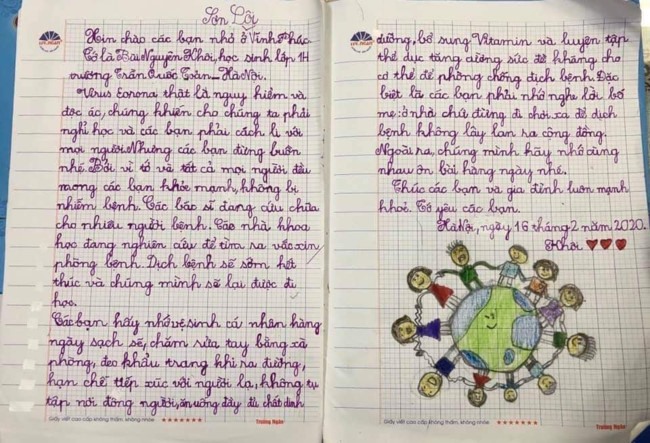 Sơn Lôi
Xin chào các bạn nhỏ ở Vĩnh Phúc.
Tớ là Bùi Nguyên Khôi, học sinh lớp 1H
trường Trần Quốc Toản - Hà Nội.
Virus Corona thật là nguy hiểm và
độc ác, chúng khiến cho chúng ta phải
nghỉ học và các bạn phải cách li với
mọi người. Nhưng các bạn đừng buồn
nhé. Bởi vì tớ và tất cả mọi người đều
mong các bạn khỏe mạnh, không bị
nhiễm bệnh. Các bác sĩ đang cứu chữa
cho nhiều người bệnh. Các nhà khoa
học đang nghiên cứu để tìm ra vắc xin
phòng bệnh. Dịch bệnh sẽ sớm hết
thúc và chúng mình sẽ lại được đi
học.
Các bạn hãy nhớ vệ sinh cá nhân hàng
ngày sạch sẽ, chăm rửa tay bằng xà
phòng, đeo khẩu trang khi ra đường,
hạn chế tiếp xúc với người lạ, không tụ
tập nơi đông người, ăn uống đầy đủ chất dinh
Giấy viết cao cấp không thấm, không nhòe. Trường Ngân
dưỡng, bổ sung Vitamin và luyện tập
thể dục tăng cường sức đề kháng cho
cơ thể để phòng chống dịch bệnh. Đặc
biệt là các bạn phải nhớ nghe lời bố
mẹ: ở nhà chứ đừng đi chơi xa để dịch
bệnh không lây lan ra cộng đồng.
Ngoài ra, chúng mình hãy nhớ cùng
nhau ôn bài hàng ngày nhé.
Chúc các bạn và gia đình luôn mạnh
khoẻ. Tớ yêu các bạn.
Hà Nội, ngày 16 tháng 2 năm 2020.
Khôi
Giấy viết cao cấp không thấm, không nhòe. Trường Ngân